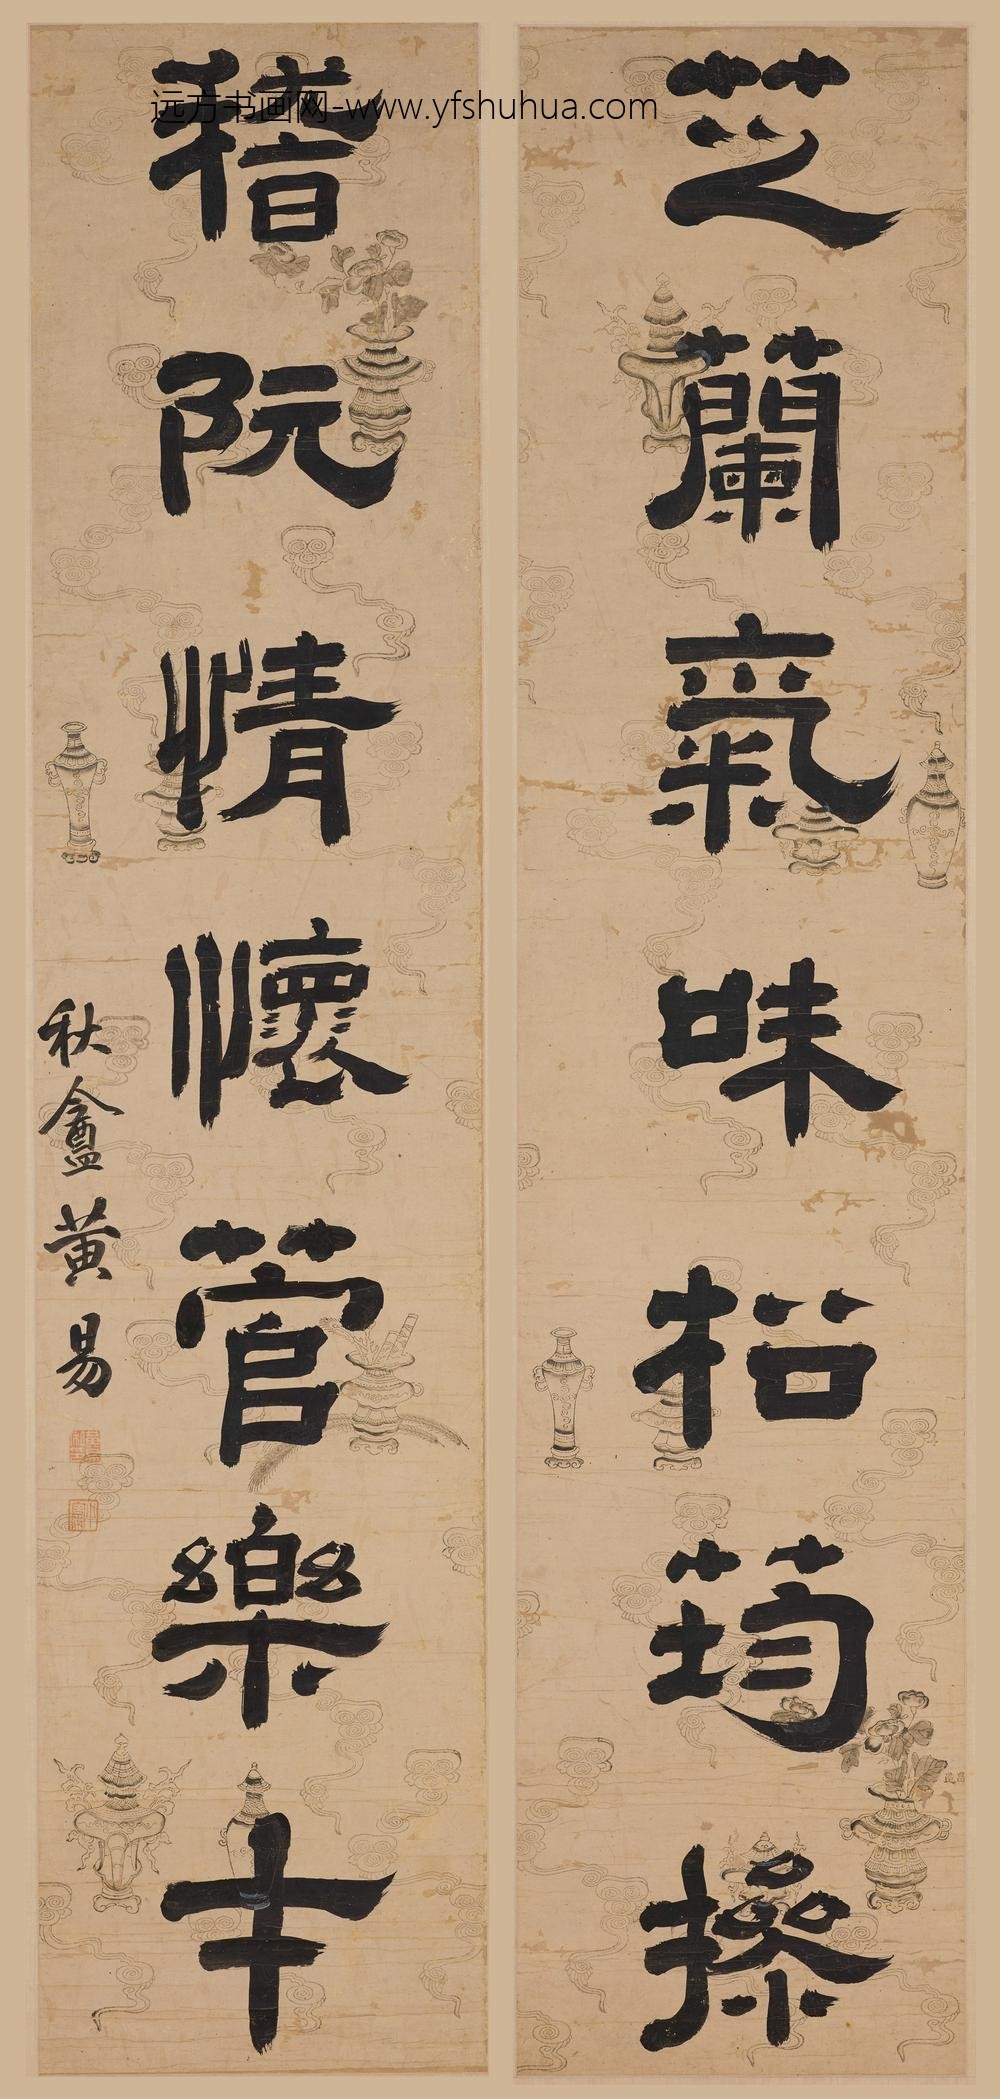 远方书画网-www.yfshuhua.com
芝蘭氣味松筠操
稽阮情懷管樂才
秋盦黄易